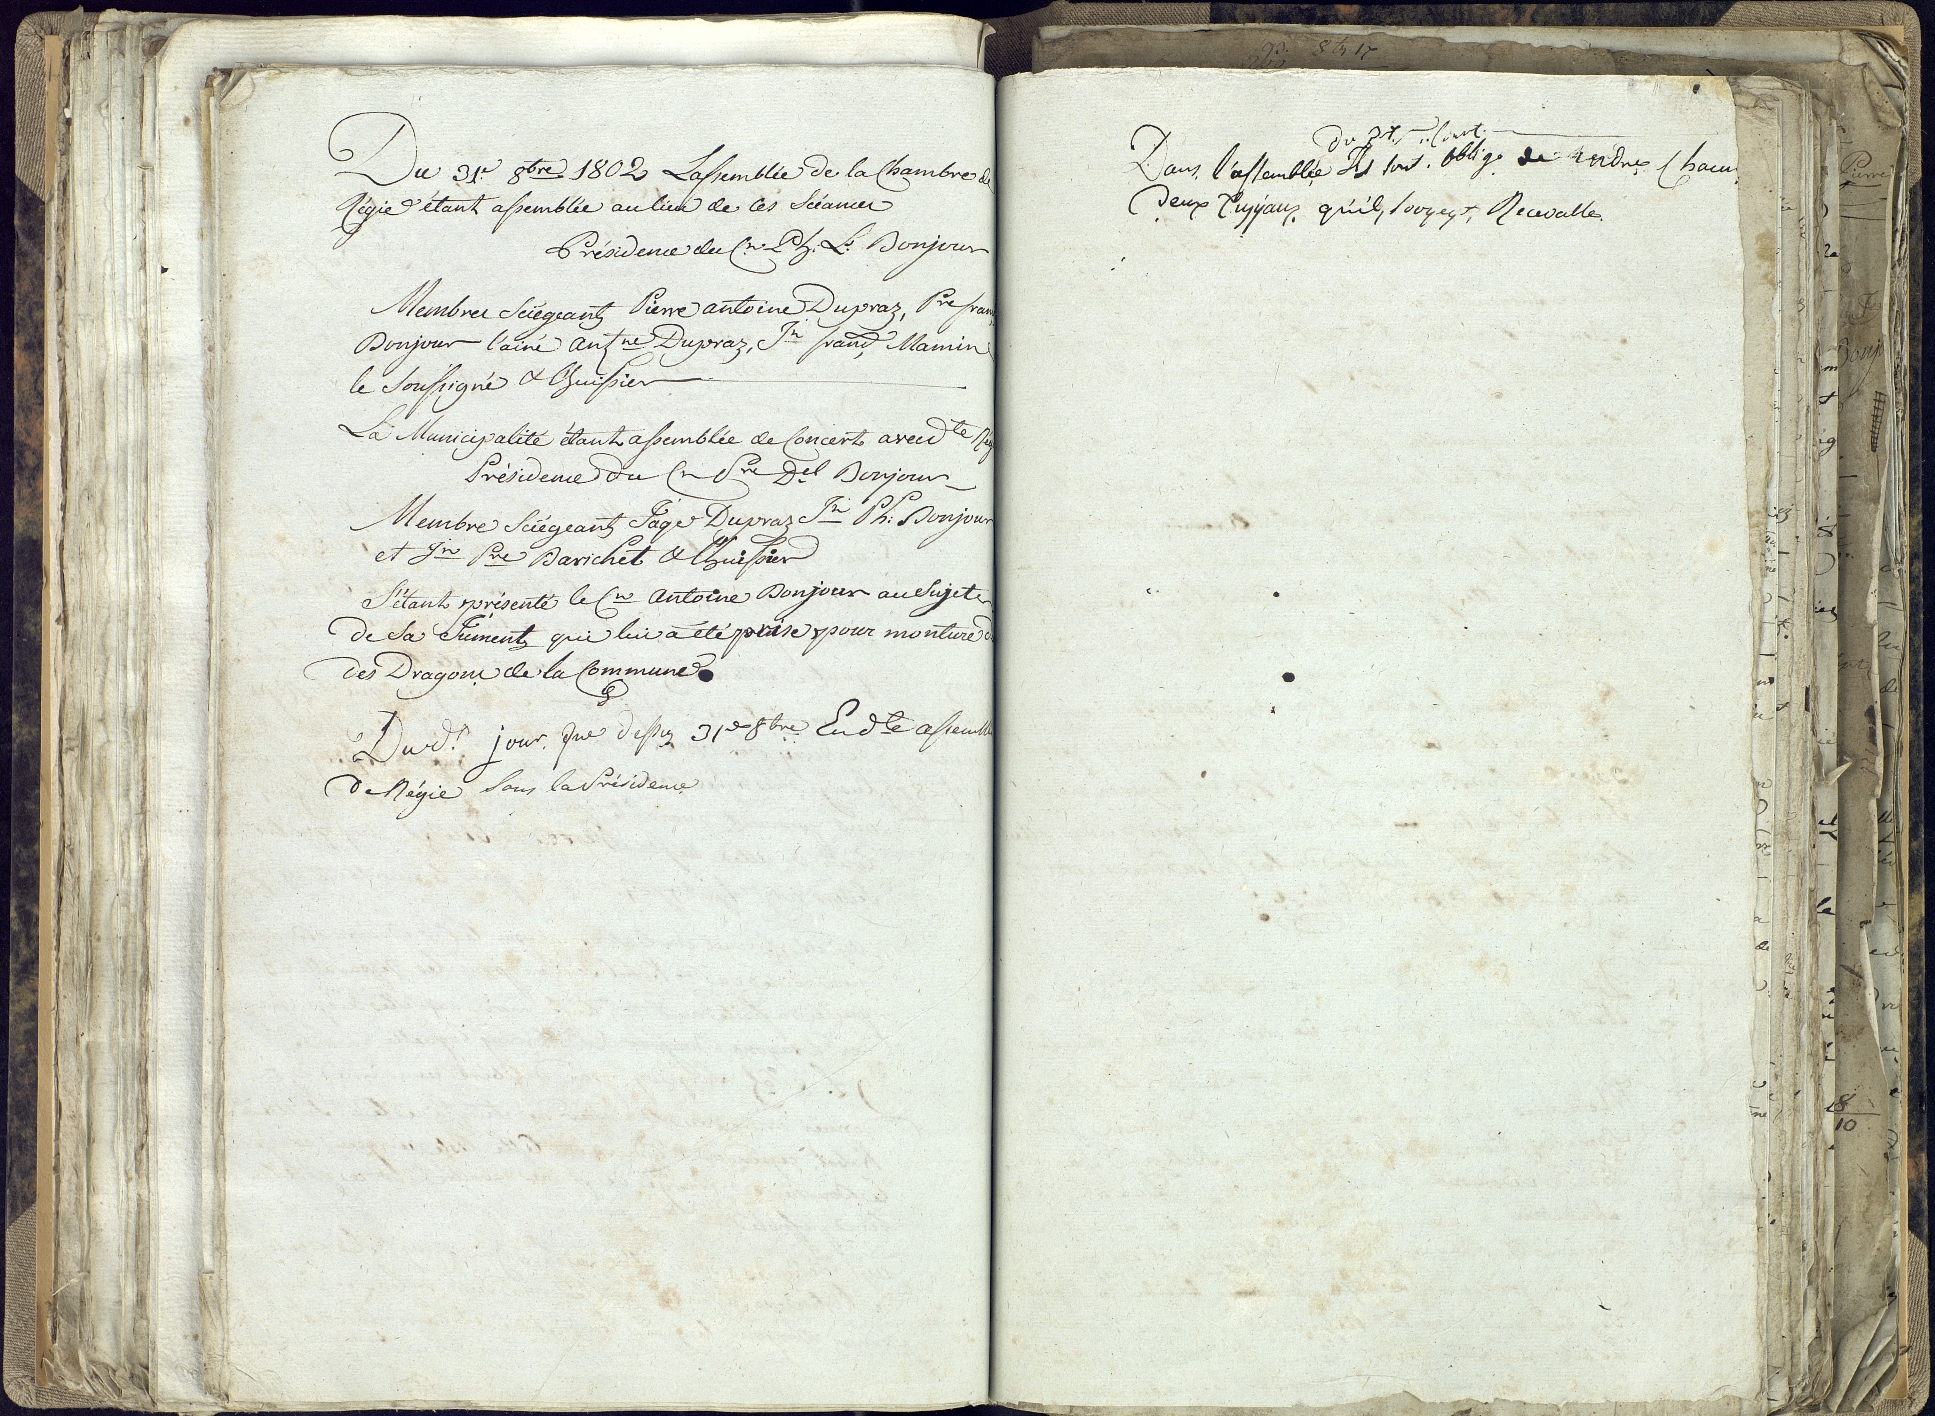 Du 31e 8bre 1802 Lassemblée de la Chambre de
Régie étant assemblée au lieu de ces Séances
Présidence du Cn Ph. L. Bonjour
Membres Siégeants Pierre antoine Dupraz, Pre franç
Bonjour l'ainé Antne Dupraz, Jn franç Mamin
le Soussigné & Lhuissier
La Municipalité étant assemblée de Concert avec dte Rég
Présidence du Cn Pre Del Bonjour
Membre Siégeant Jâqe Dupraz Jn Ph: Bonjour
et Jn Pre Barichet & Lhuissier
S'étant présenté le Cn Antoine Bonjour au Sujet
de Sa Jument qui lui a été prise pour monture d
des Dragons de la Commune
Du dt jour que dessus 31e 8bre En dte assemblé
de Régie Sous la Présidence
du Court
Dans l'assemblée Ils sont obligé de rendre Chacun
Deux qu'il Soyent Recevable
8 17
Pierre
Bonj
18
10